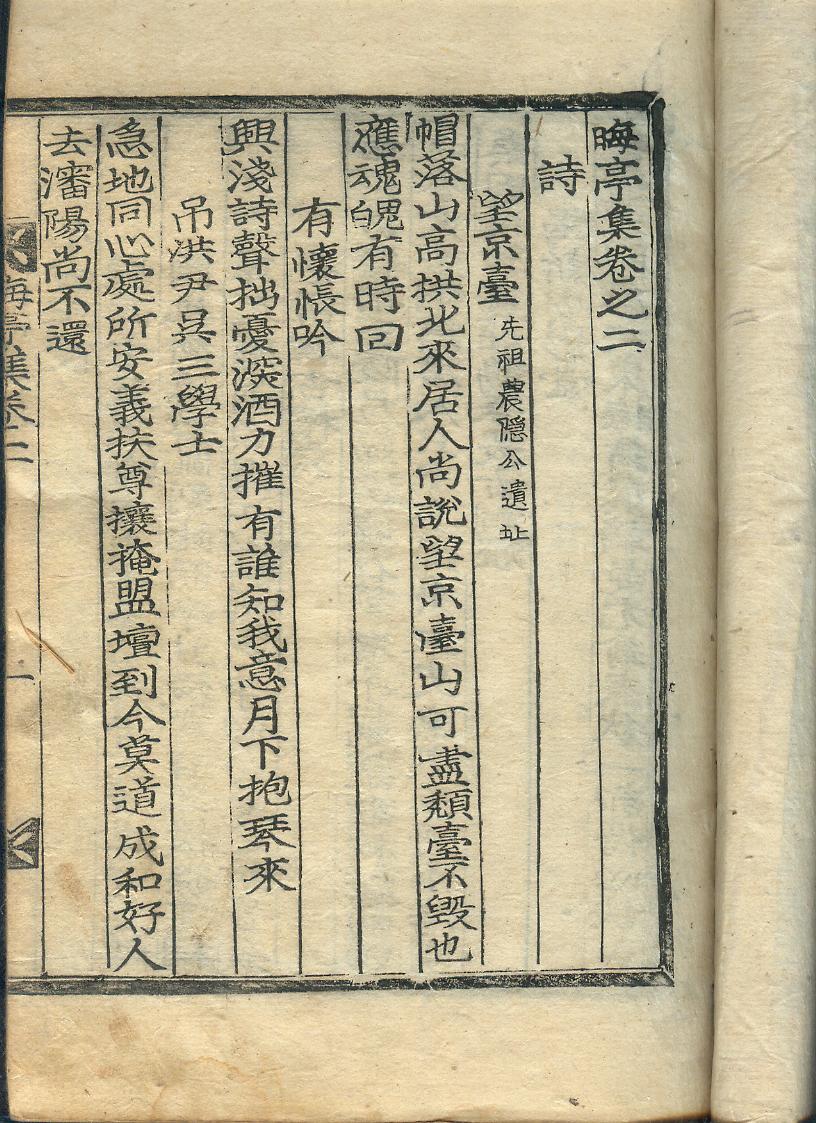 晦亭集卷之二
詩
望京臺 先祖農隱公遺址
帽落山高拱北來居人尚說望京臺山可盡頹臺不毀也
應魂魄有時回
有懷悵吟
興淺詩聲拙憂深酒力摧有誰知我意月下抱琴來
吊洪尹吳三學士
急地同心處所安義扶尊攘掩盟壇到今莫道成和好人
去瀋陽尚不還
晦亭集卷二 一